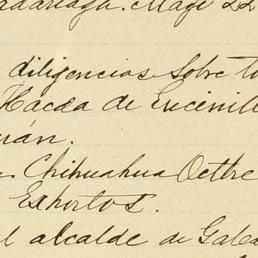 Mayo 22
diligencias sobre
Hacda de Encinill
Chihuahua Octbre
Exhortos.
el alcalde de Galea